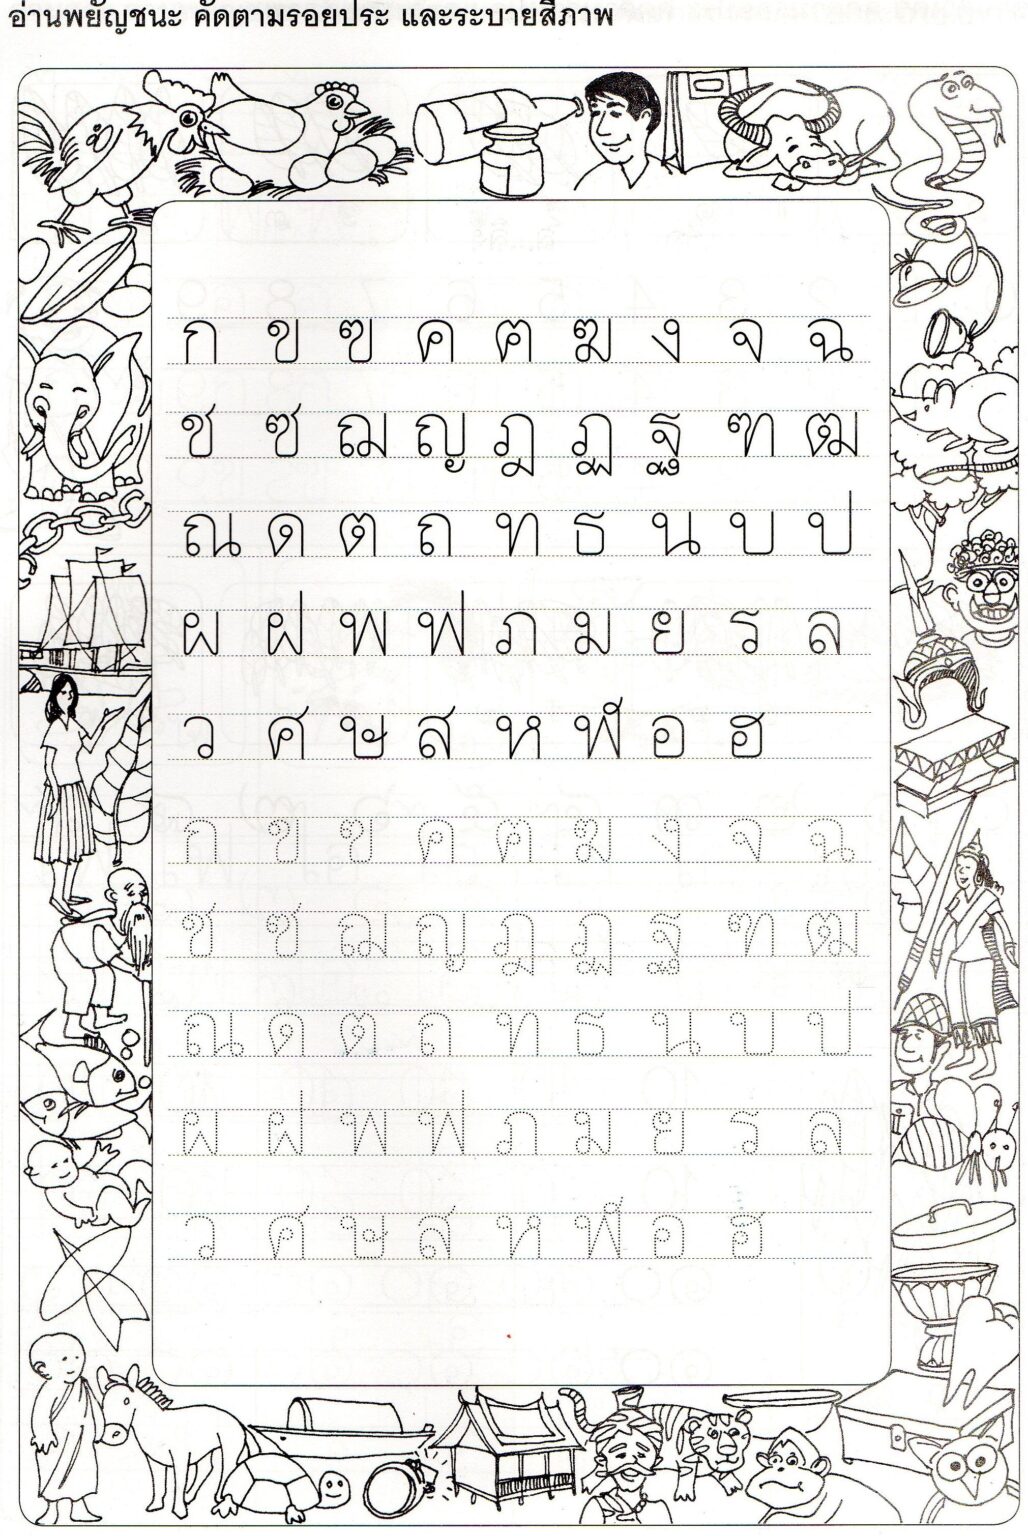 อ่านพยัญชนะ คัดตามรอยประ และระบายสีภาพ
ก ข ฃ ค ฅ ฆ ง จ ฉ
ช ซ ฌ ญ ฎ ฏ ฐ ฑ ฒ
ณ ด ต ถ ท ธ น บ ป
ผ ฝ พ ฟ ภ ม ย ร ล
ว ศ ษ ส ห ฬ อ ฮ
ก ข ฃ ค ฅ ฆ ง จ ฉ
ช ซ ฌ ญ ฎ ฏ ฐ ฑ ฒ
ณ ด ต ถ ท ธ น บ ป
ผ ฝ พ ฟ ภ ม ย ร ล
ว ศ ษ ส ห ฬ อ ฮ